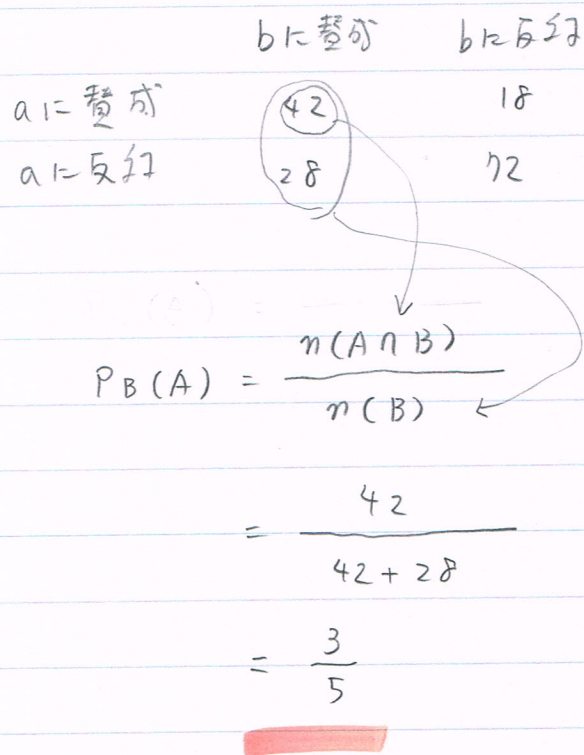 bに賛成 bに反対
aに賛成 42 18
aに反対 28 72
PB(A) = n(A∩B) / n(B)
= 42 / 42+28
= 3 / 5